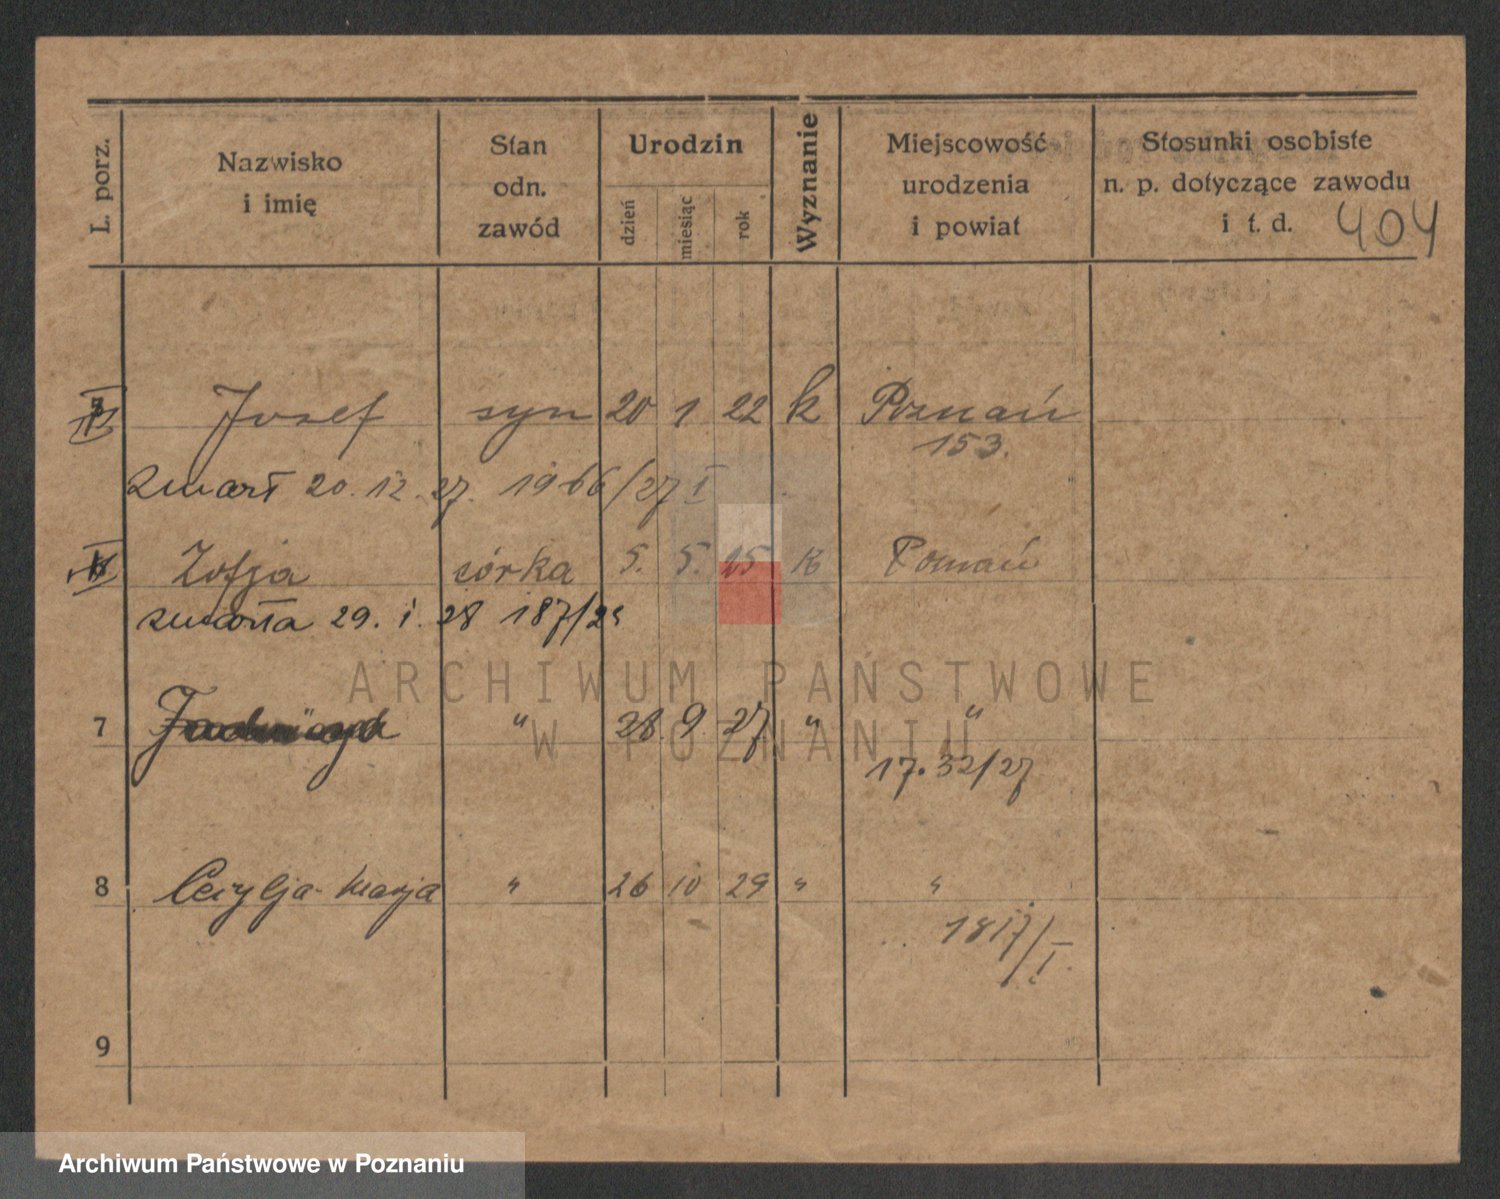 L. porz. Nazwisko i imię Stan odn. zawód Urodzin dzień miesiąc rok Wyznanie Miejscowość urodzenia i powiat Stosunki osobiste n. p. dotyczące zawodu i t. d. 404
Josef syn 20 1 22 k Poznań
153.
zmarł 20. 12. 27. 1966/27 I
Zofja córka 5. 5. 25 k Poznań
zmarła 29. 1. 28 187/28
ARCHIWUM PAŃSTWOWE
W POZNANIU
7 " 28. 9. 27 " "
17.32/27
8 Cecylja Marja " 26 10 29 " "
1817/I.
9
Archiwum Państwowe w Poznaniu